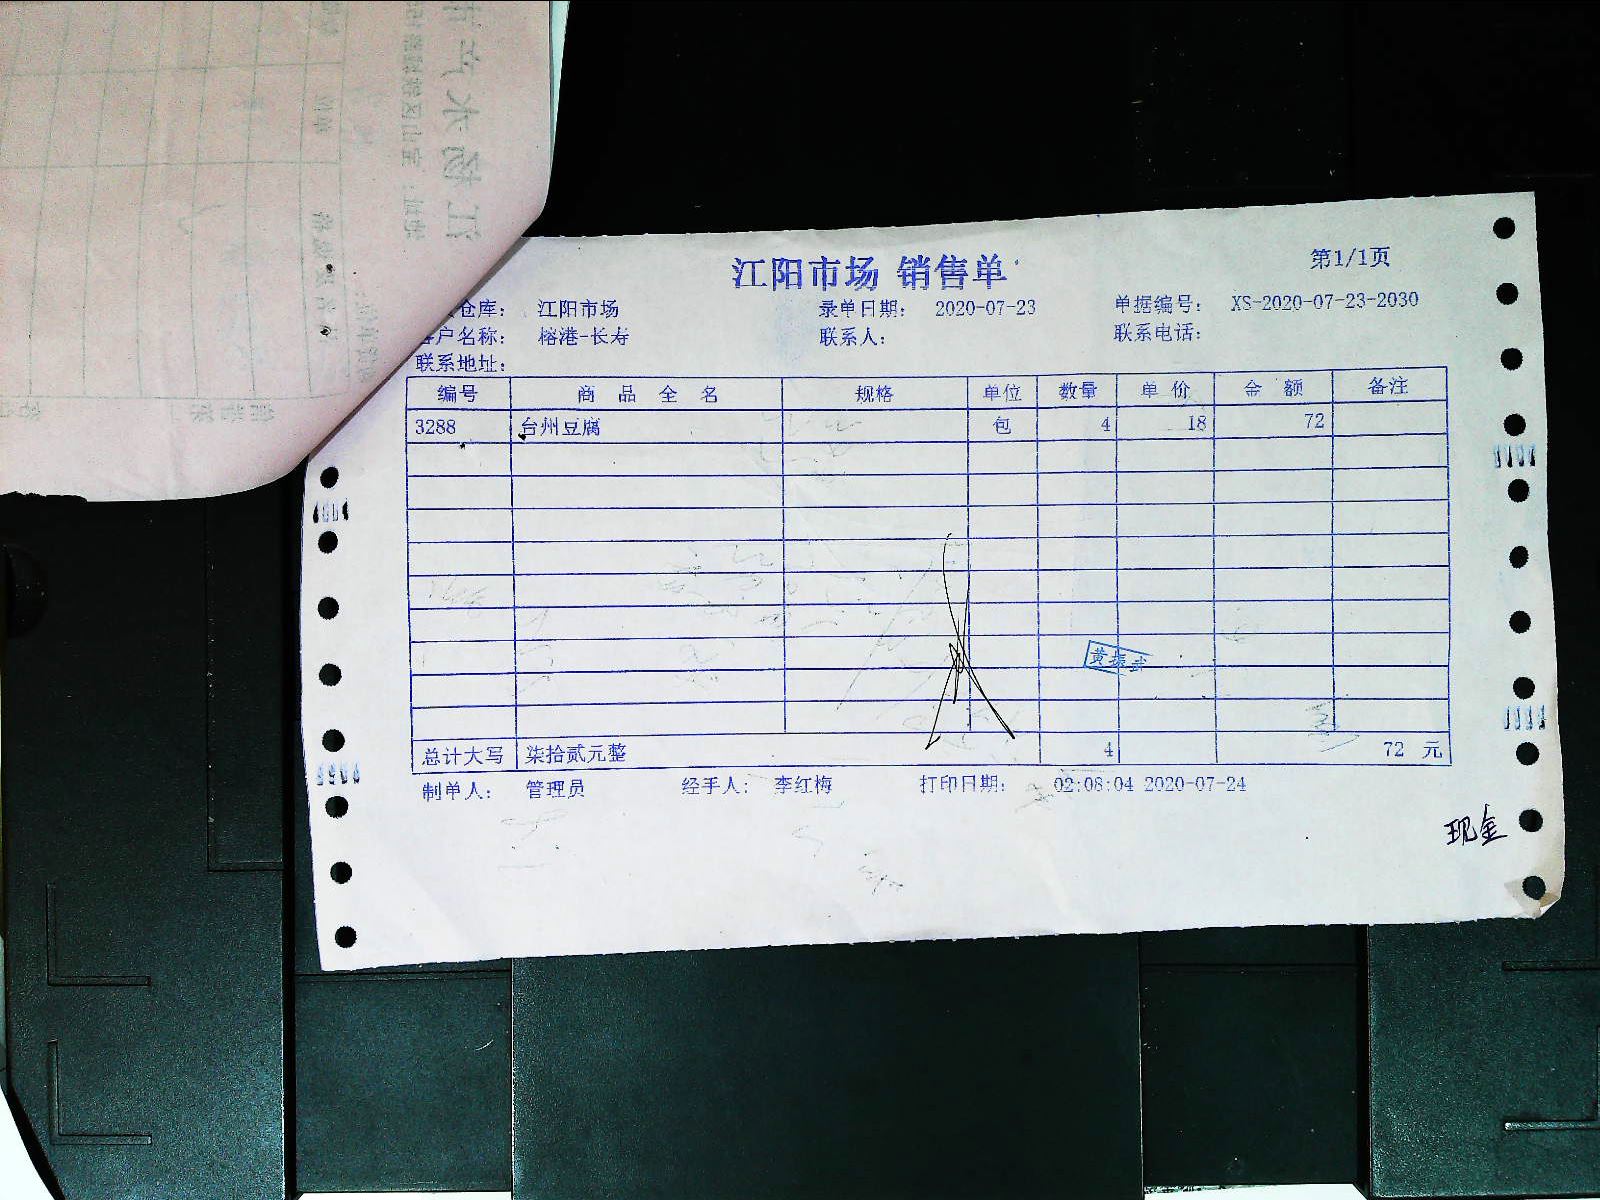 江阳市场 销售单
第1/1页
仓库： 江阳市场 录单日期： 2020-07-23 单据编号： XS-2020-07-23-2030
户名称： 榕港-长寿 联系人： 联系电话：
联系地址：
编号 商品全名 规格 单位 数量 单价 金额 备注
3288 台州豆腐 包 4 18 72
黄振武
总计大写 柒拾贰元整 4 72 元
制单人： 管理员 经手人： 李红梅 打印日期： 02:08:04 2020-07-24
现金